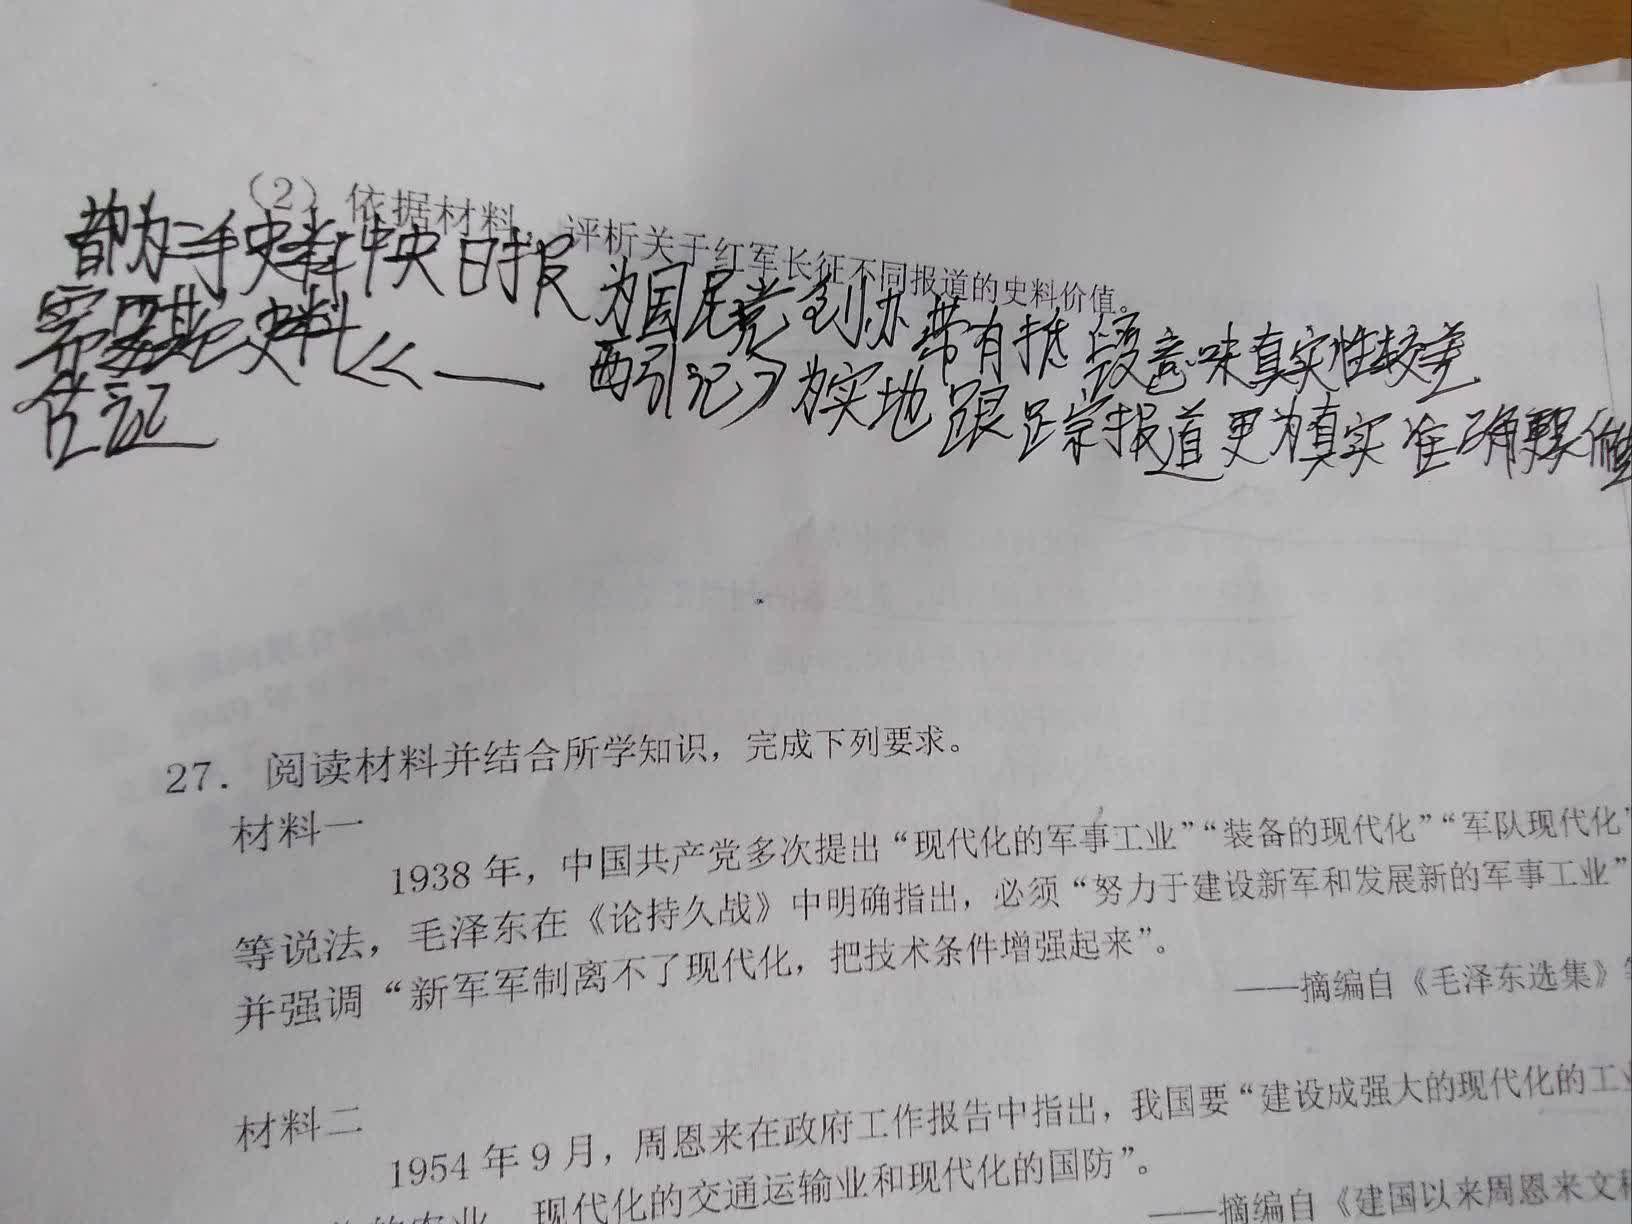 (2) 依据材料，评析关于红军长征不同报道的史料价值。
都为二手史料中央日报为国民党创办带有抵毁意味真实性较差
西引记》为实地跟踪报道更为真实准确
需要其它史料《
佐证
27. 阅读材料并结合所学知识，完成下列要求。
材料一
1938 年，中国共产党多次提出“现代化的军事工业”“装备的现代化”“军队现代化”
等说法，毛泽东在《论持久战》中明确指出，必须“努力于建设新军和发展新的军事工业”
并强调“新军军制离不了现代化，把技术条件增强起来”。
——摘编自《毛泽东选集》
材料二
1954 年 9 月，周恩来在政府工作报告中指出，我国要“建设成强大的现代化的工
农业、现代化的交通运输业和现代化的国防”。
——摘编自《建国以来周恩来文